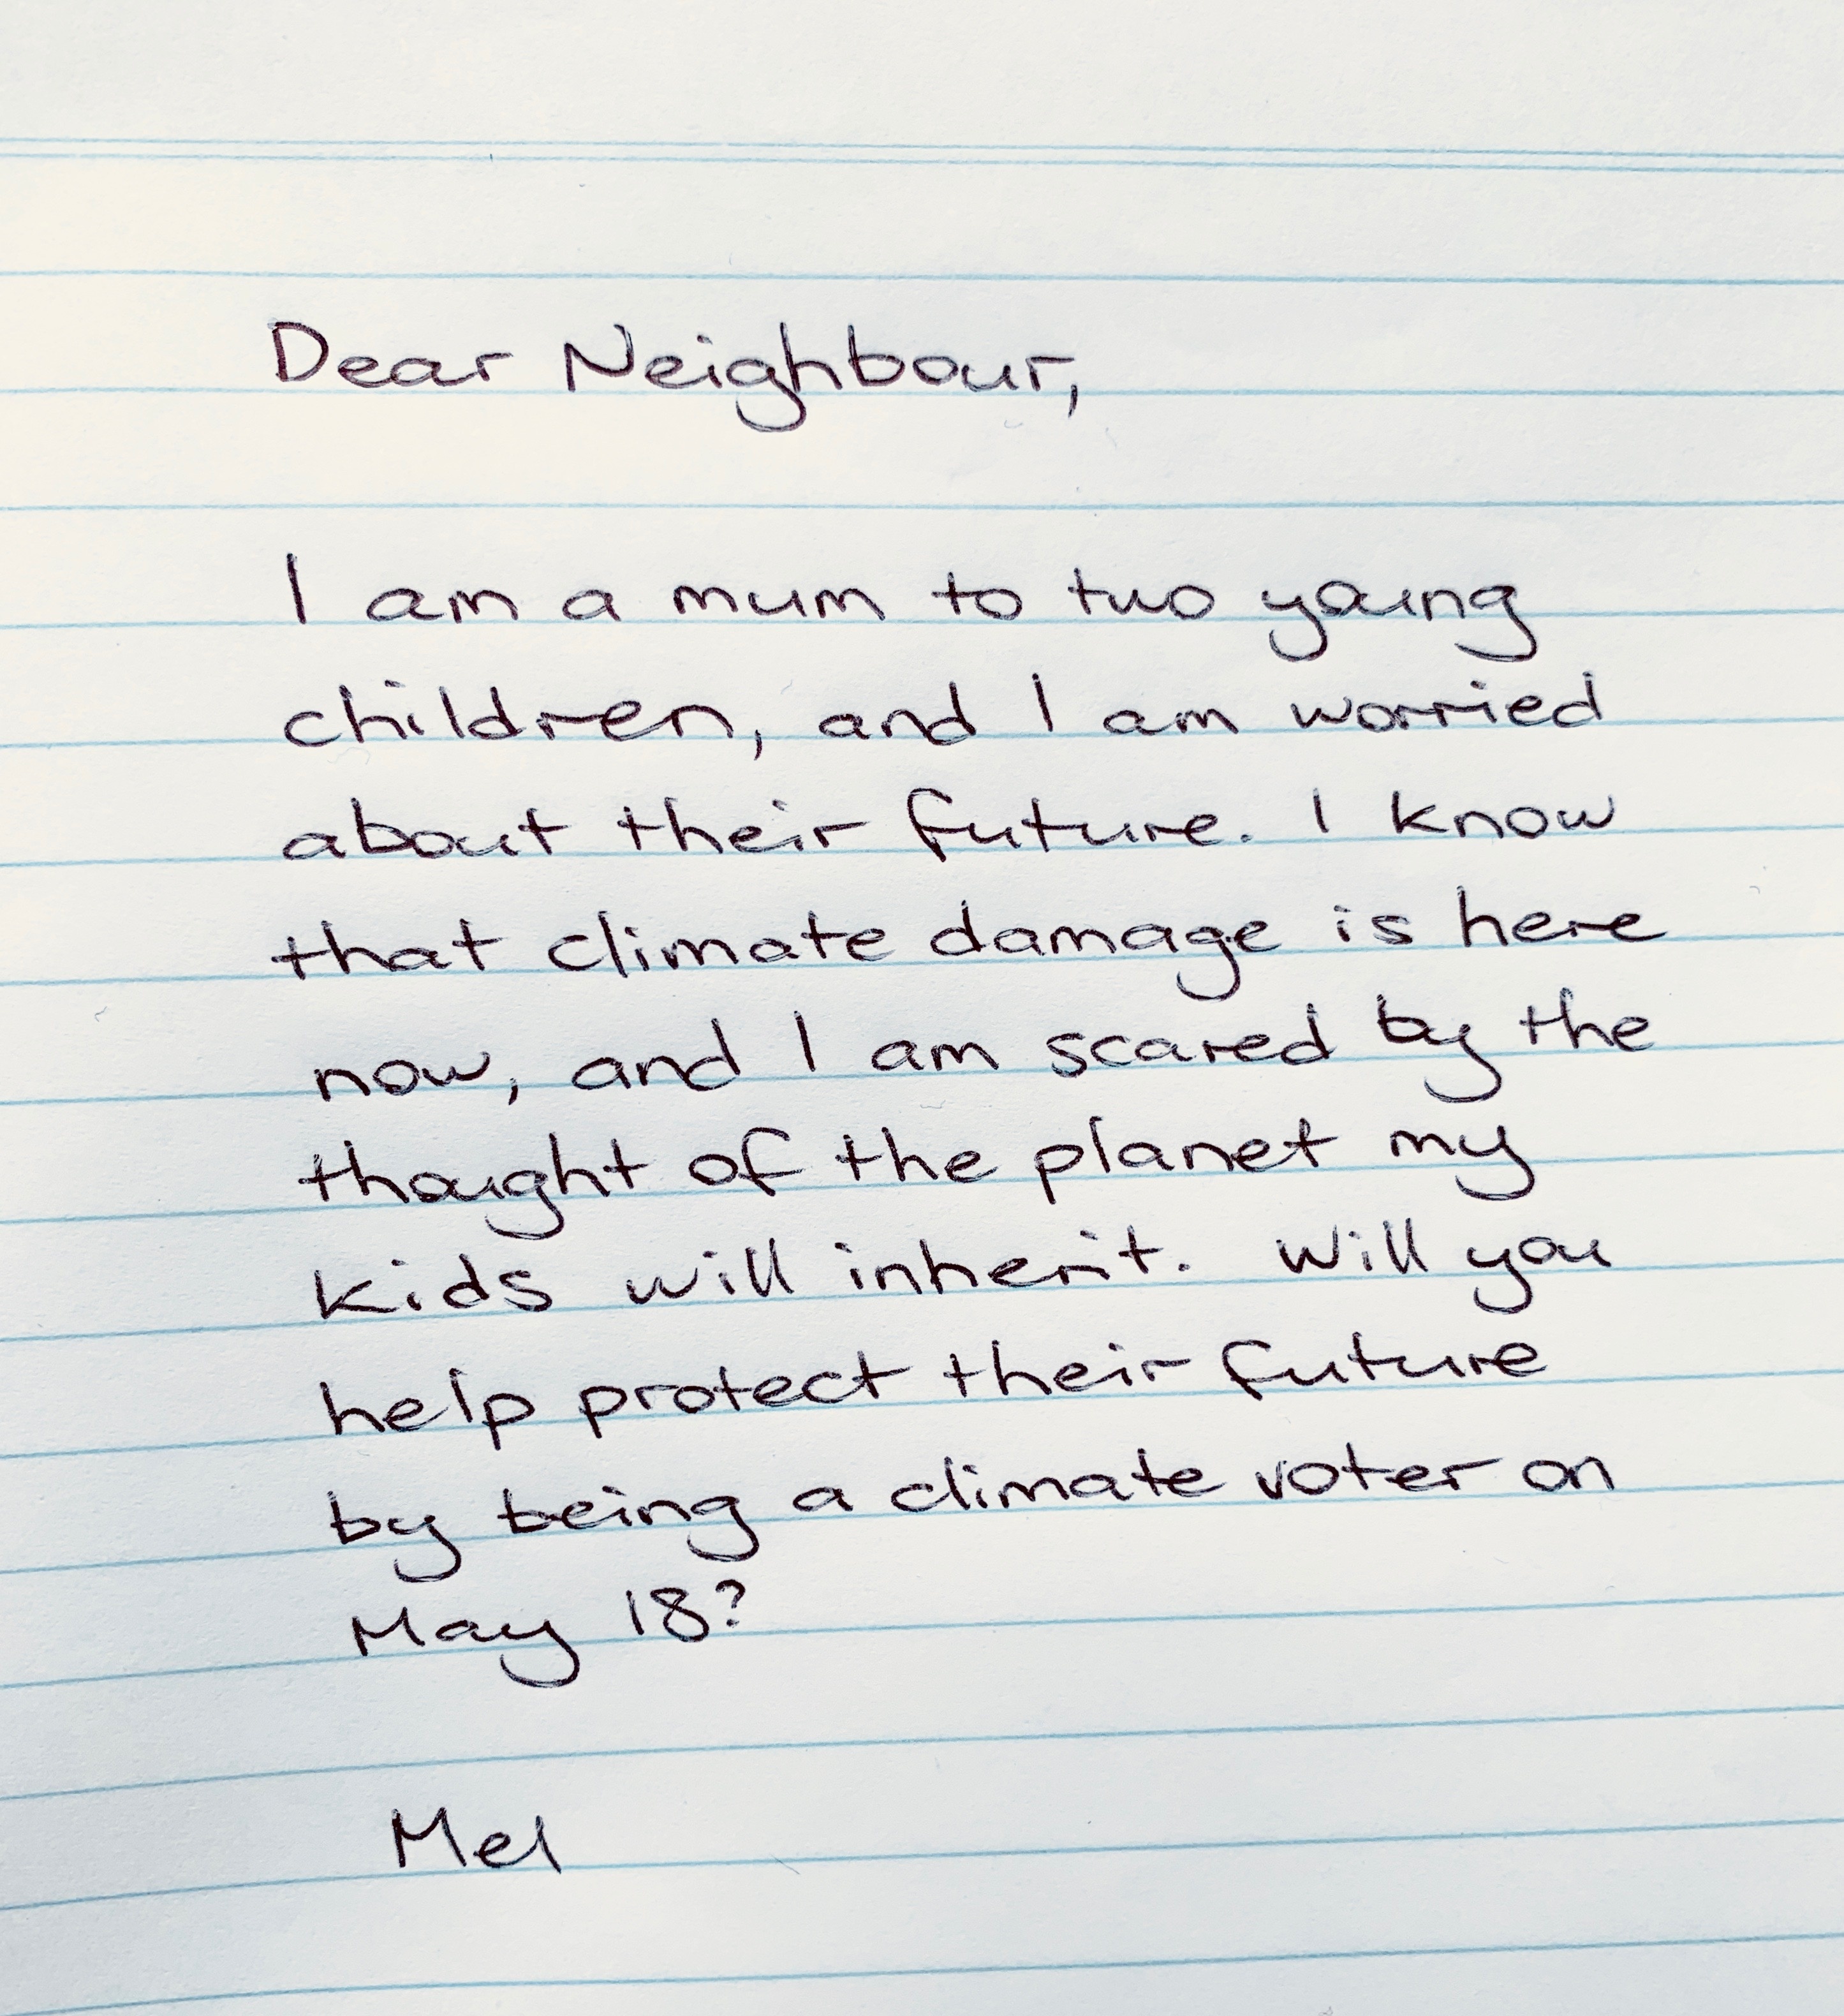 Dear Neighbour,
I am a mum to two young
children, and I am worried
about their future. I know
that climate damage is here
now, and I am scared by the
thought of the planet my
kids will inherit. Will you
help protect their future
by being a climate voter on
May 18?
Mel